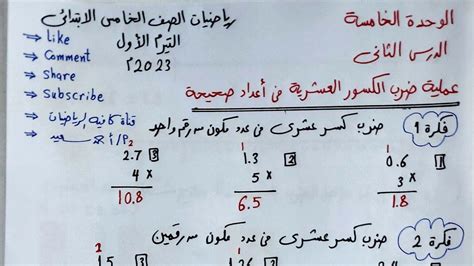 الوحدة الخامسة
الدرس الثانى
عملية ضرب الكسور العشرية فى أعداد صحيحة
رياضيات الصف الخامس الابتدائى
الترم الأول
٢٠23
⇒ Like
⇒ Comment
⇒ Share
⇒ Subscribe
⇒ قناة
الرياضيات
فكرة 1 ضرب كسر عشرى فى عدد مكون من رقم واحد
1 0.6
3 ×
1.8
2 1
1.3
5 ×
6.5
3 2
2.7
4 ×
10.8
فكرة 2 ضرب كسر عشرى فى عدد مكون من رقمين